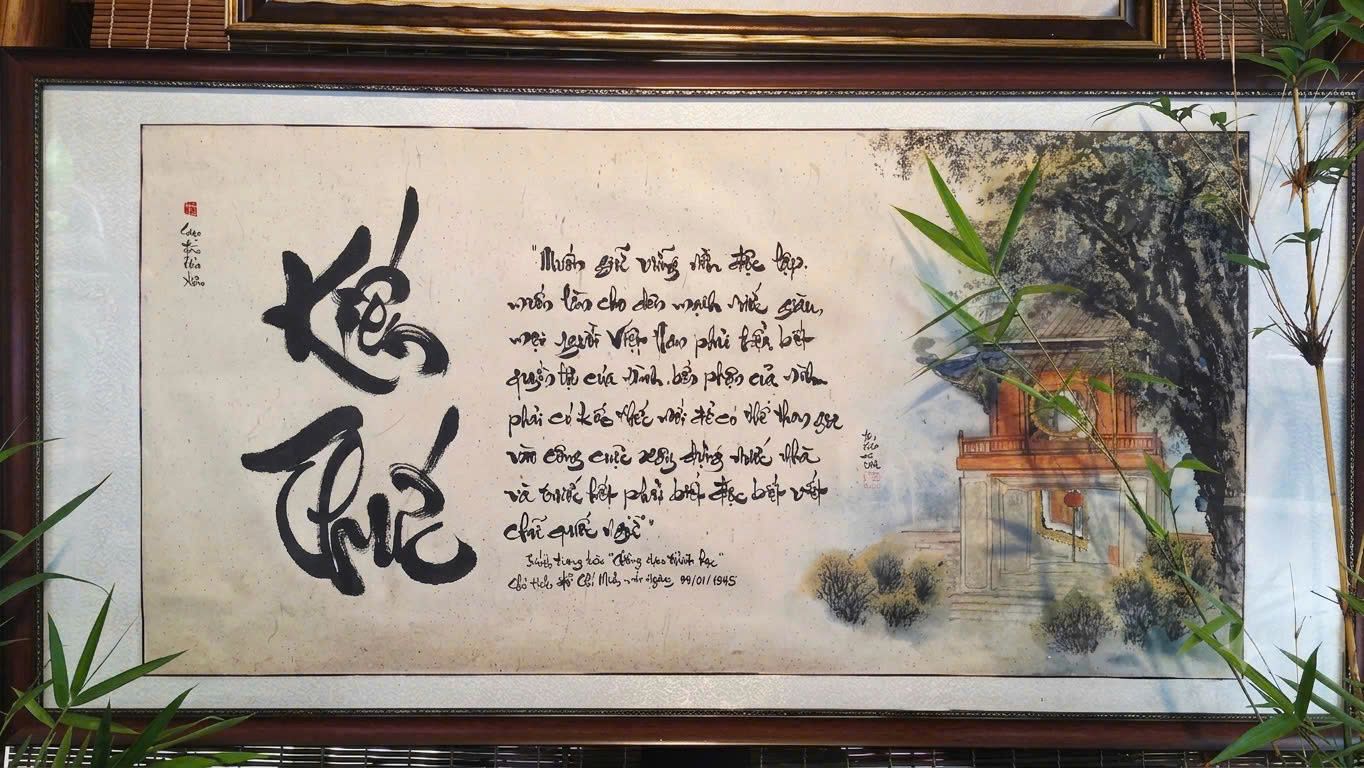 Kiến
Thức
"Muốn giữ vững nền độc lập,
muốn làm cho dân mạnh nước giàu,
mọi người Việt Nam phải hiểu biết
quyền lợi của mình, bổn phận của mình
phải có kiến thức mới để có thể tham gia
vào công cuộc xây dựng nước nhà
và trước hết phải biết đọc biết viết
chữ quốc ngữ"
Trích trong bài "Chống nạn thất học"
Chủ tịch Hồ Chí Minh ngày /01/1945